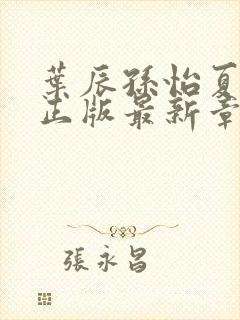 葉辰孫怡夏
正版最新章
張永昌